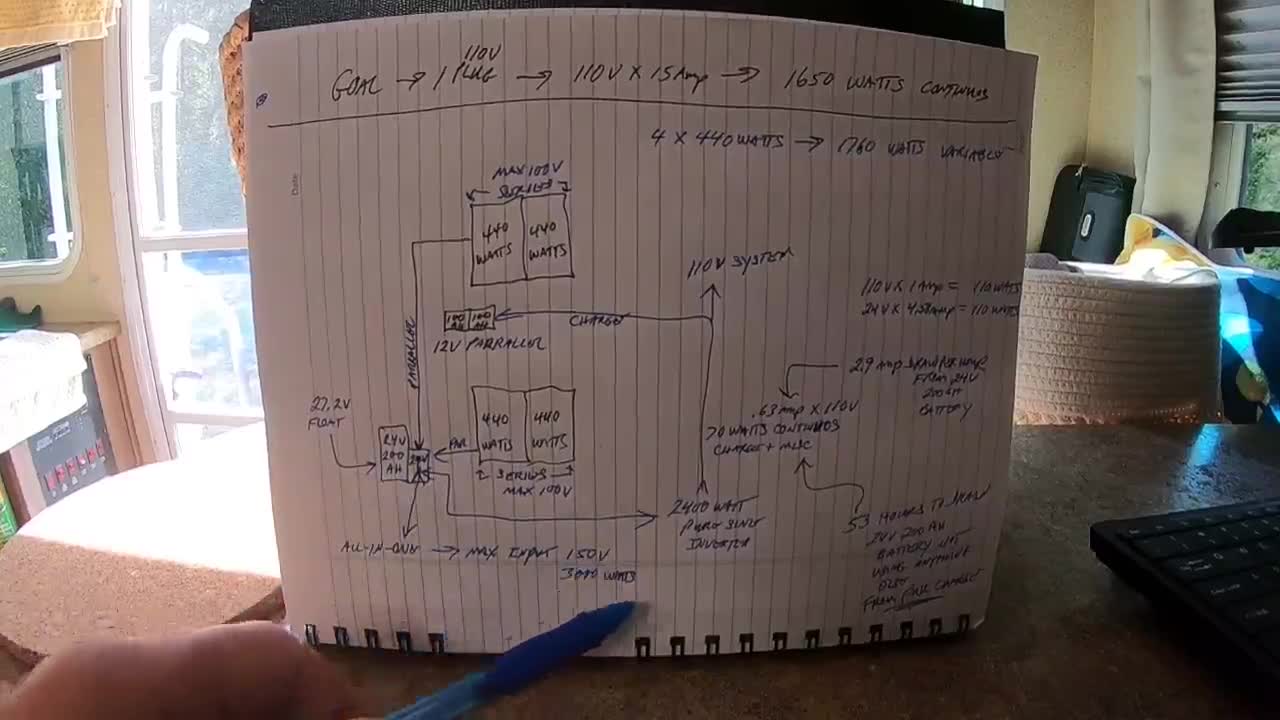 110V
GOAL → 1 PLUG → 110V X 15 Amp → 1650 WATTS
4 X 440 WATTS → 1760 WATTS VARIABLE
Date
MAX 100V
SERIES
440 WATTS
440 WATTS
110V SYSTEM
110V X 1 Amp = 110 WATTS
24V X 4.58 Amp = 110 WATTS
100 AH
100 AH
CHARGE
12V PARRALLEL
PARRALLEL
2.9 Amp DRAW PER HOUR
FROM 24V
200 AH
BATTERY
27.2V
FLOAT
24V
200
AH
PAR
440
WATTS
440
WATTS
SERIES
MAX 100V
.63 Amp X 110V
70 WATTS
CHARGE + MISC
ALL-IN-ONE → MAX INPUT 150V
3000 WATTS
2400 WATT
PURE SINE
INVERTER
53 HOURS TO DRAW
24V 200 AH
BATTERY NOT
USING ANYTHING
ELSE
FROM FULL CHARGE